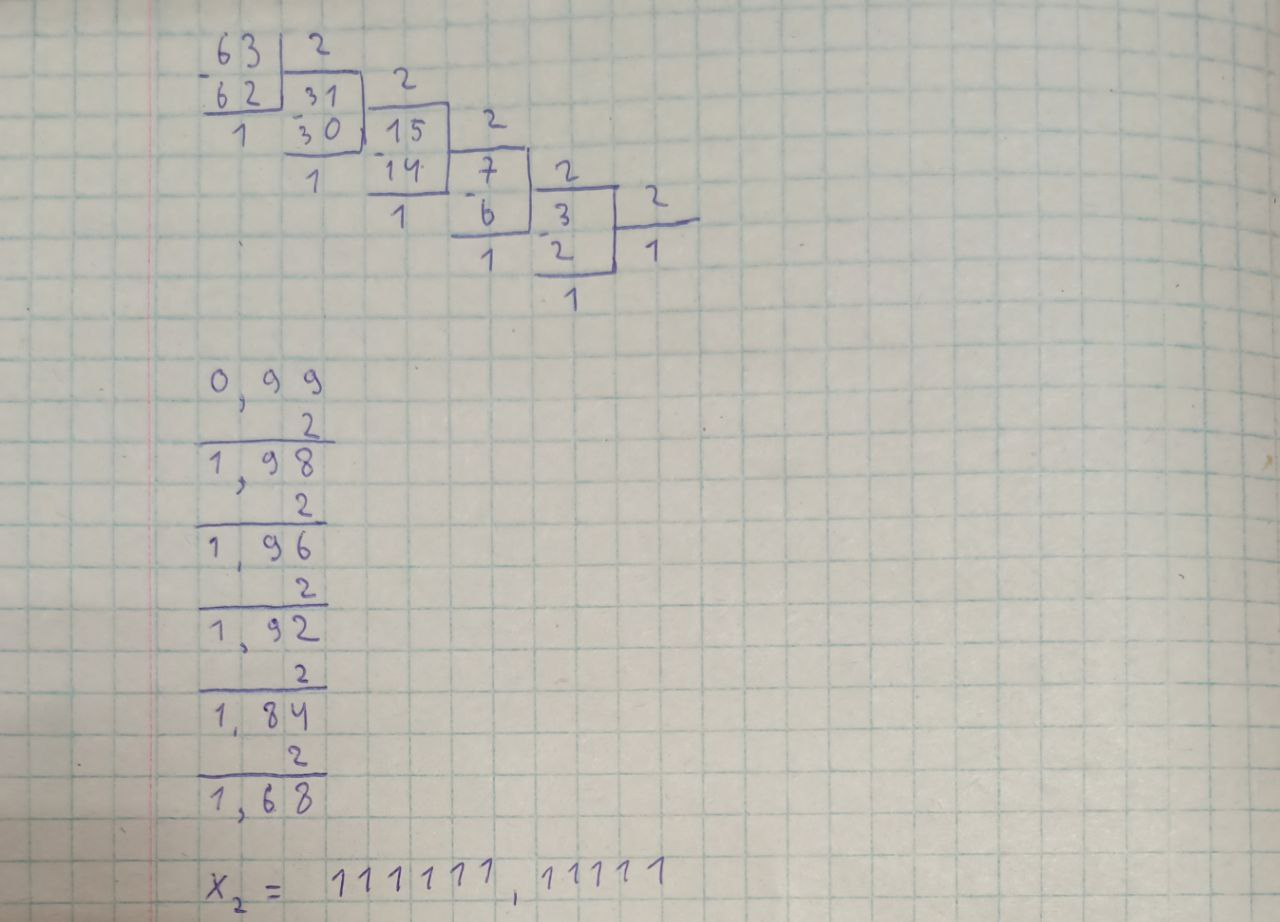 63 2
- 62 31 2
1 - 30 15 2
1 - 14 7 2
1 - 6 3 2
1 - 2 1
1
0,99
2
1,98
2
1,96
2
1,92
2
1,84
2
1,68
x₂ = 111111,11111